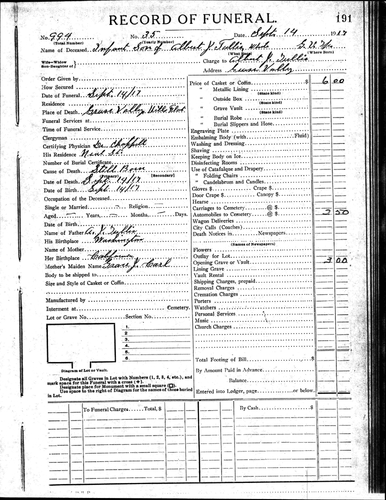 RECORD OF FUNERAL. 191
No. 994 No. 35 Date Sept. 14 1917
(Total Number) (Yearly Number)
Name of Deceased Infant Son of Albert J.
Charge to Albert J.
Address Grass Valley
Order Given by
How Secured
Date of Sept. 14/17
Residence
Place of Grass Valley
Funeral Services at
Time of Funeral Service
Clergyman
Certifying Physician Dr. Chappell
His Residence
Number of Burial Certificate
Cause of Death Still Born
(Secondary)
Date of Death Sept 14/17
Date of Birth Sept. 14/17
Occupation of the Deceased
Single or Married Religion
Aged Years, Months Days
Date of Birth
Name of Father A. J.
His Birthplace Washington
Name of Mother
Her Birthplace California
Mother's Maiden Name Grace J. Carl
Body to be shipped to
Size and Style of Casket or Coffin
Manufactured by
Interment at Cemetery.
Lot or Grave No. Section No.
1.
2.
3.
4.
5.
6.
Diagram of Lot or Vault.
Designate all Graves in Lot with Numbers (1, 2, 3, 4, etc.), and
mark space for this Funeral with a cross (+).
Designate place for Monument with a small square (□).
Use space to the right of Diagram for the names of those buried
in Lot.
Price of Casket or Coffin 6 00
" Metallic Lining
" Outside Box
" Grave Vault
" Burial Robe
" Burial Slippers and Hose
Engraving Plate
Embalming Body (with Fluid)
Washing and Dressing
Shaving
Keeping Body on Ice
Disinfecting Rooms
Use of Catafalque and Drapery
" Folding Chairs
" Candelabrum and Candles
Gloves $ Crape $
Door Crape $ Canopy $
Hearse
Carriages to Cemetery @ $
Automobiles to Cemetery @ $ 3 50
Wagon Deliveries
City Calls (Coaches) @ $
Death Notices in Newspapers
(Names of Newspapers)
Flowers
Outlay for Lot
Opening Grave or Vault 3 00
Lining Grave
Vault Rental
Shipping Charges, prepaid
Removal Charges
Cremation Charges
Porters
Watchers
Personal Services
Music
Church Charges
Total Footing of Bill $
By Amount Paid in Advance
Balance
Entered into Ledger, page or below.
To Funeral Charges Total, $ By Cash $